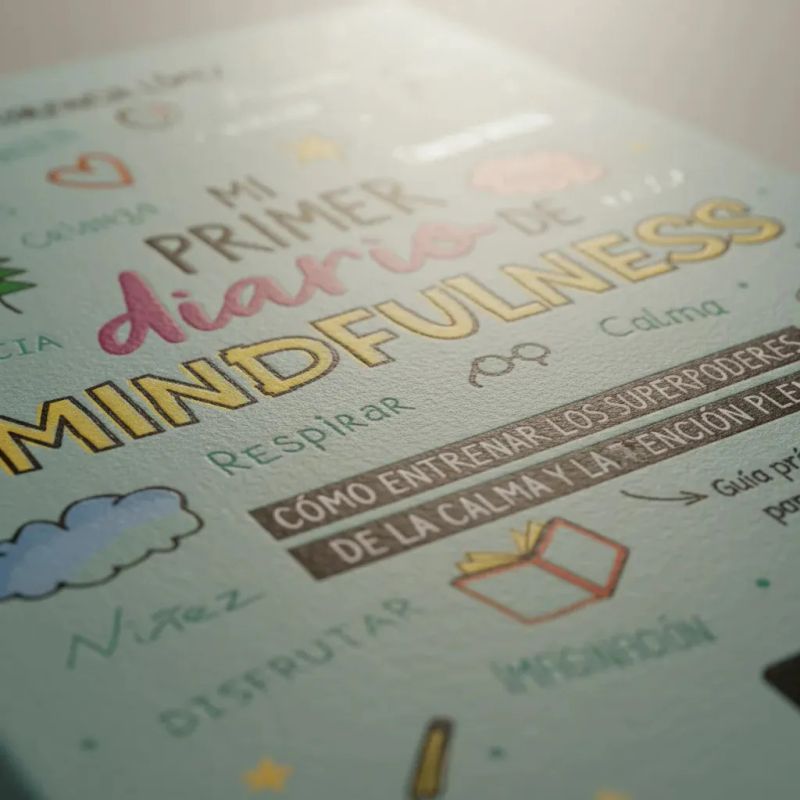 MI
PRIMER
diario DE
MINDFULNESS
Calma
Respirar
CÓMO ENTRENAR LOS SUPERPODERES
DE LA CALMA Y LA ENCIÓN PLE
Guía
Niñez
DISFRUTAR
IMAGINACIÓN